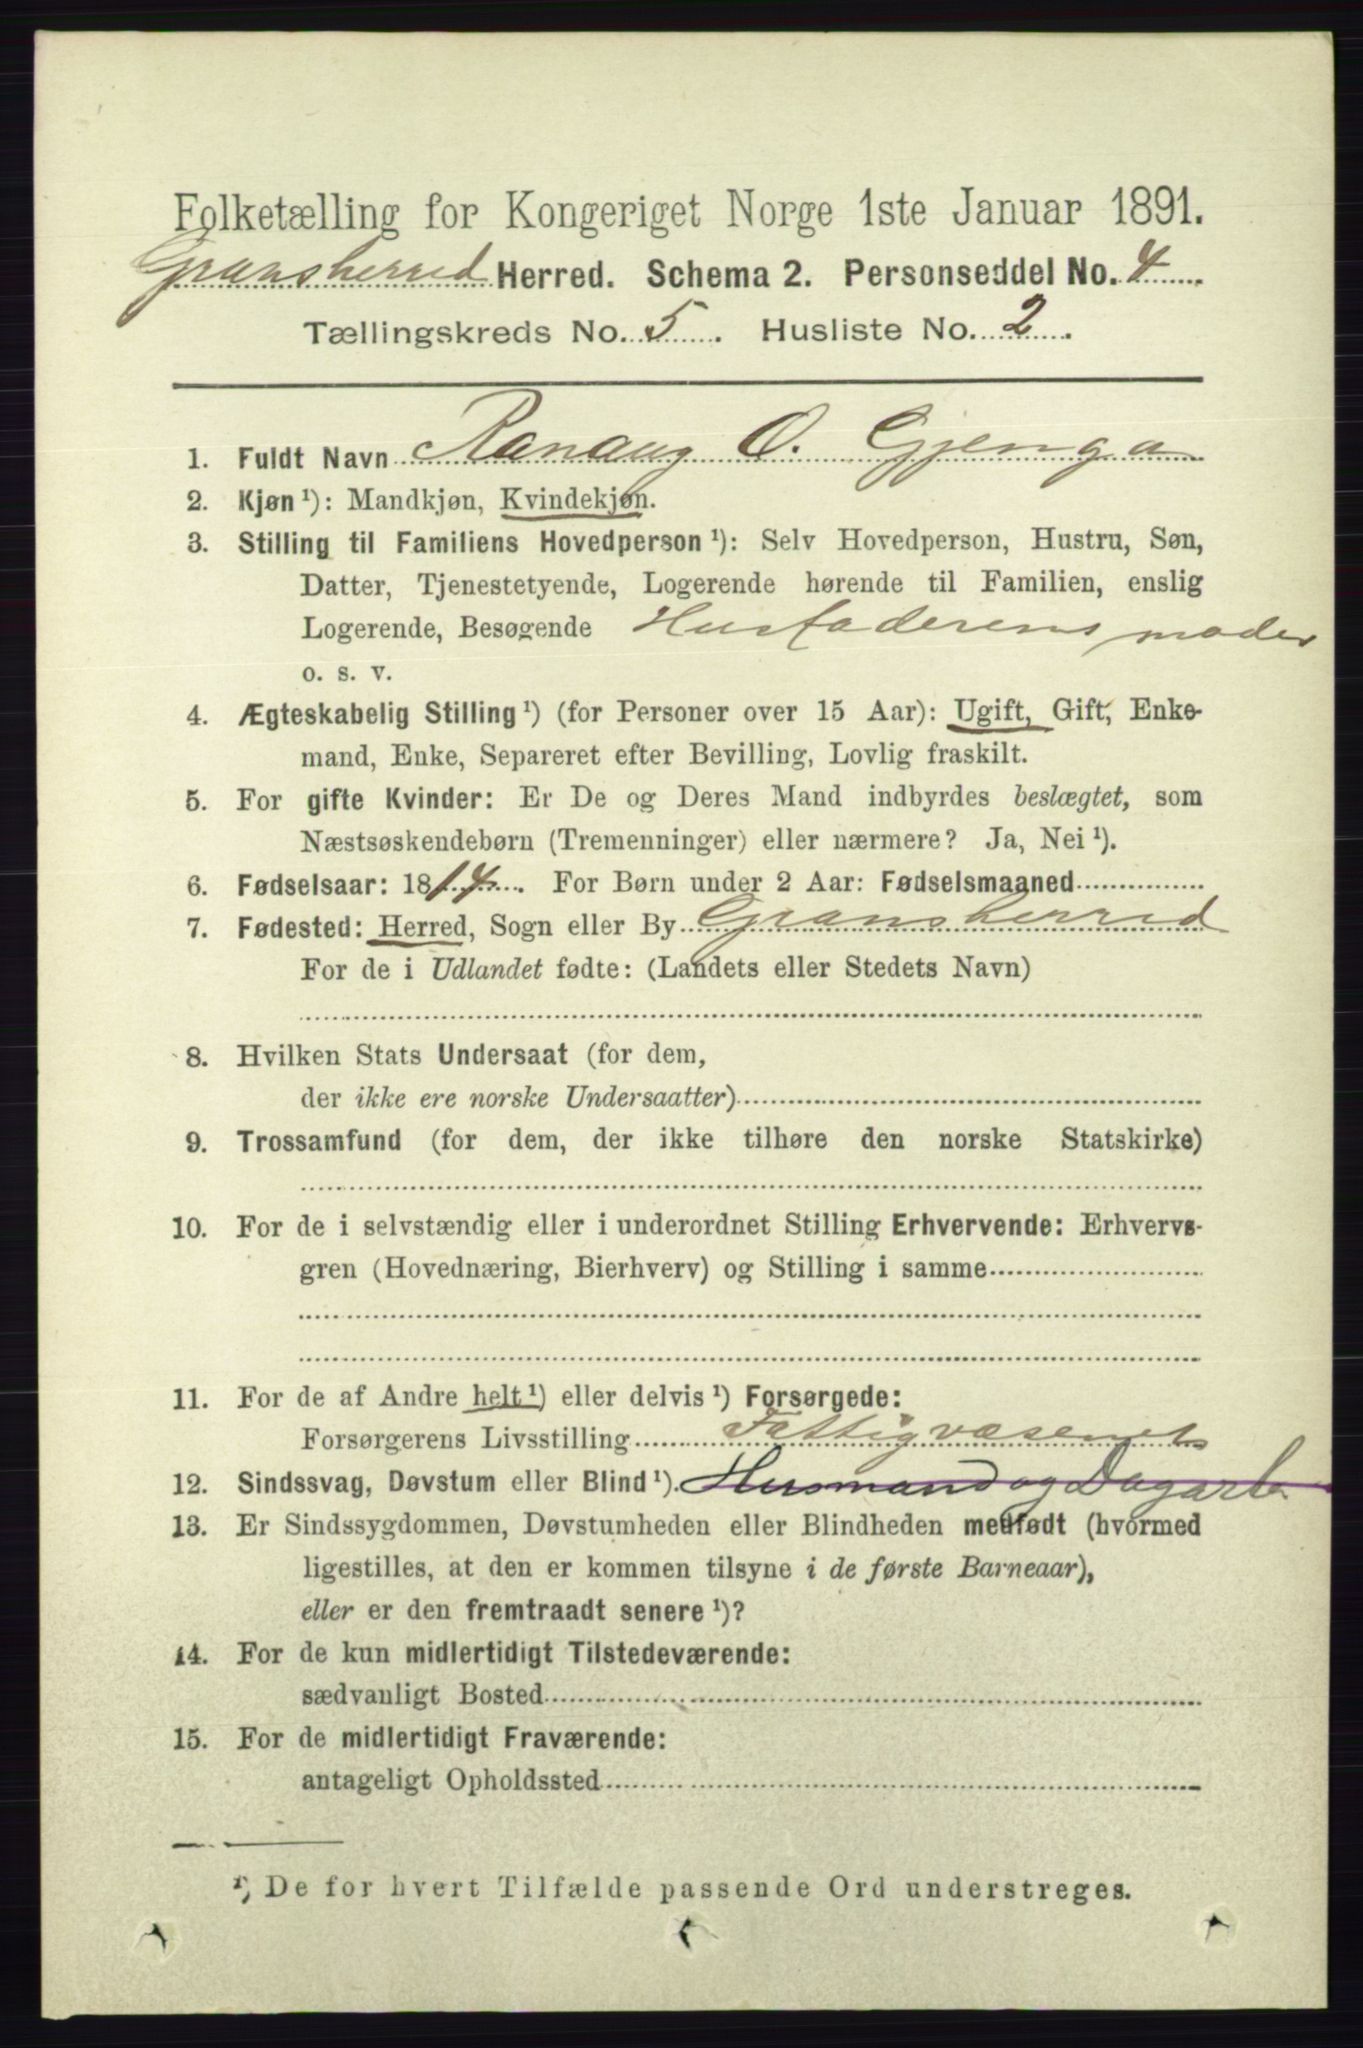 Folketælling for Kongeriget Norge 1ste Januar 1891.
Gransherred Herred. Schema 2. Personseddel No. 4
Tællingskreds No. 5. Husliste No. 2.
1. Fuldt Navn Ranaug O. Gjenga
2. Kjøn ¹): Mandkjøn, Kvindekjøn.
3. Stilling til Familiens Hovedperson ¹): Selv Hovedperson, Hustru, Søn,
Datter, Tjenestetyende, Logerende hørende til Familien, enslig
Logerende, Besøgende Husfaderens moder
o. s. v.
4. Ægteskabelig Stilling ¹) (for Personer over 15 Aar): Ugift, Gift, Enke-
mand, Enke, Separeret efter Bevilling, Lovlig fraskilt.
5. For gifte Kvinder: Er De og Deres Mand indbyrdes beslægtet, som
Næstsøskendebørn (Tremenninger) eller nærmere? Ja, Nei ¹).
6. Fødselsaar: 1814. For Børn under 2 Aar: Fødselsmaaned
7. Fødested: Herred, Sogn eller By Gransherred
For de i Udlandet fødte: (Landets eller Stedets Navn)
8. Hvilken Stats Undersaat (for dem,
der ikke ere norske Undersaatter)
9. Trossamfund (for dem, der ikke tilhøre den norske Statskirke)
10. For de i selvstændig eller i underordnet Stilling Erhvervende: Erhvervs-
gren (Hovednæring, Bierhverv) og Stilling i samme
11. For de af Andre helt ¹) eller delvis ¹) Forsørgede:
Forsørgerens Livsstilling Fattigvæsenet
12. Sindssvag, Døvstum eller Blind ¹). Husmand og Dagarb
13. Er Sindssygdommen, Døvstumheden eller Blindheden medfødt (hvormed
ligestilles, at den er kommen tilsyne i de første Barneaar),
eller er den fremtraadt senere ¹)?
14. For de kun midlertidigt Tilstedeværende:
sædvanligt Bosted
15. For de midlertidigt Fraværende:
antageligt Opholdssted
¹) De for hvert Tilfælde passende Ord understreges.